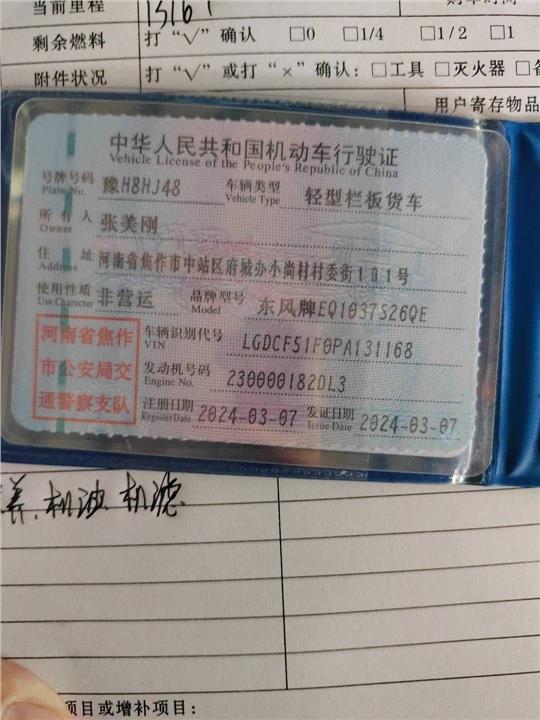 当前里程 13161
剩余燃料 打“√”确认 □0 □1/4 □1/2 □1
附件状况 打“√”或打“×”确认：□工具 □灭火器
用户寄存物品
中华人民共和国机动车行驶证
Vehicle License of the People's Republic of China
号牌号码 豫H8HJ48 车辆类型 轻型栏板货车
Plate No. Vehicle Type
所有人 张美刚
Owner
住址 河南省焦作市中站区府城办小尚村村委街101号
Address
使用性质 非营运 品牌型号 东风牌EQ1037S26QE
Use Character Model
河南省焦作
市公安局交
通警察支队
车辆识别代号 LGDCF51F0PA131168
VIN
发动机号码 230000182DL3
Engine No.
注册日期 2024-03-07 发证日期 2024-03-07
Register Date Issue Date
养.机油.机滤
项目或增补项目：